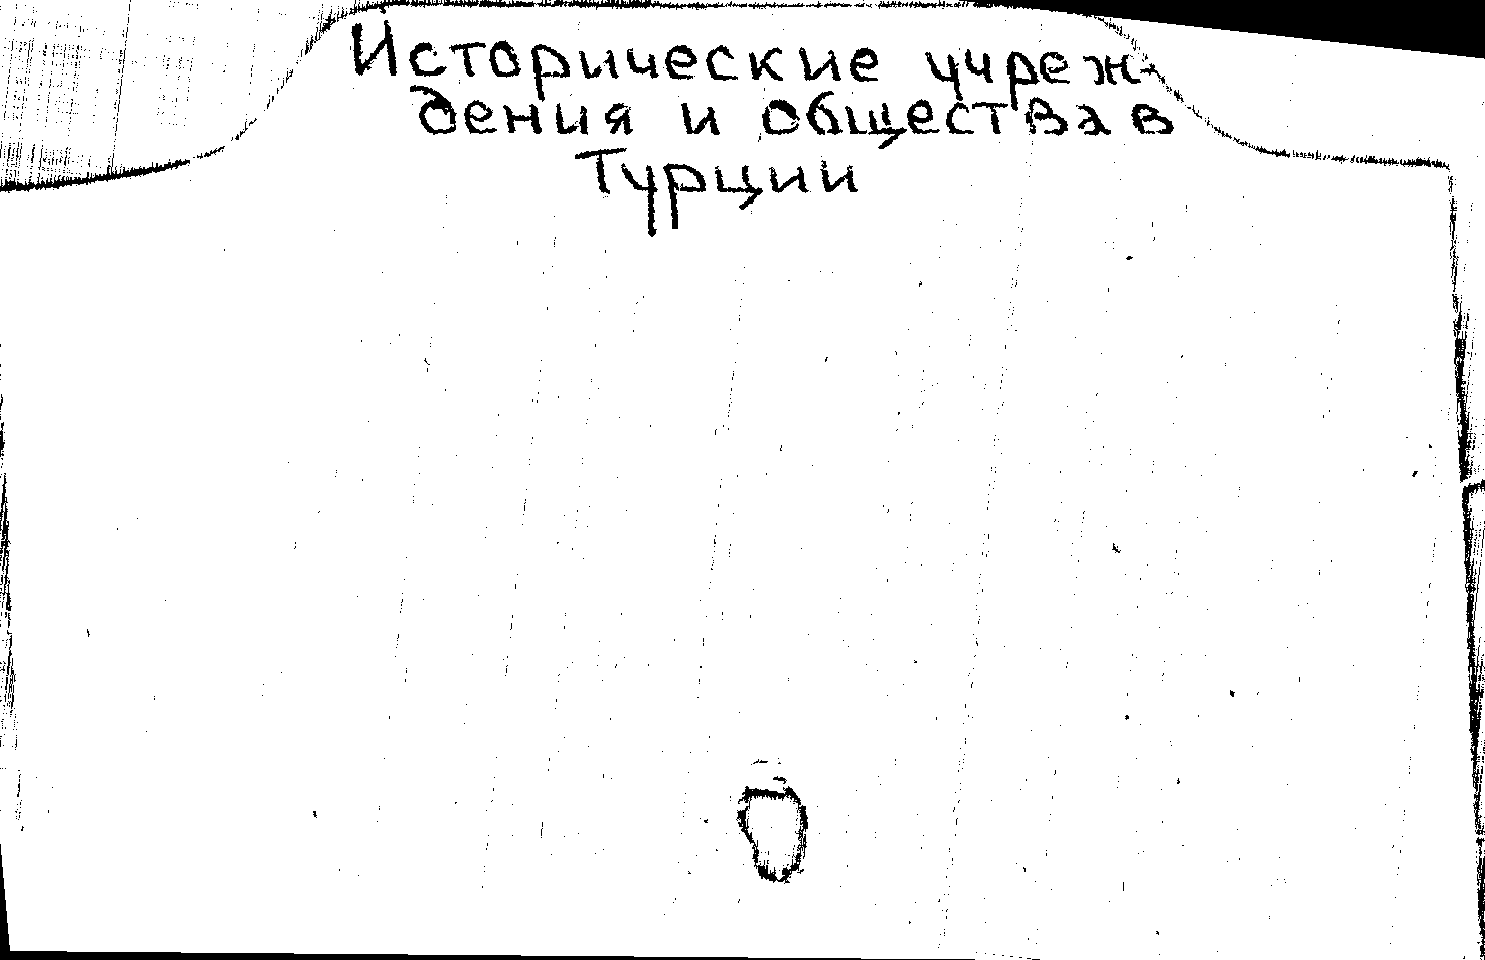 Исторические учреж-
дения и общества в
Турции